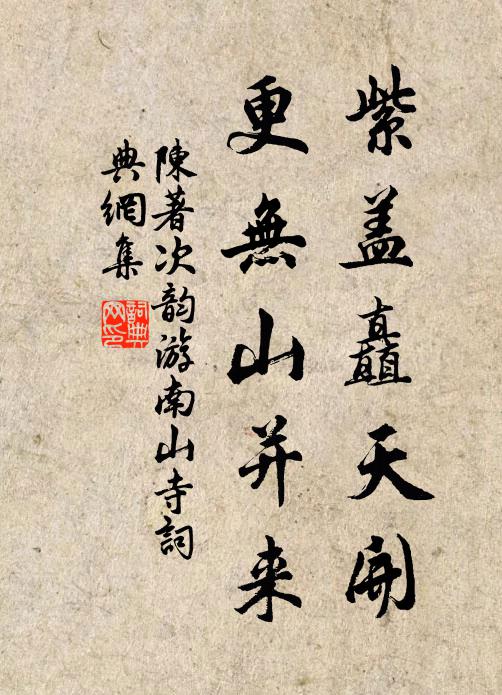 紫盖矗天開
更無山并来
陳著次韵游南山寺詞
典網集
詞典网印